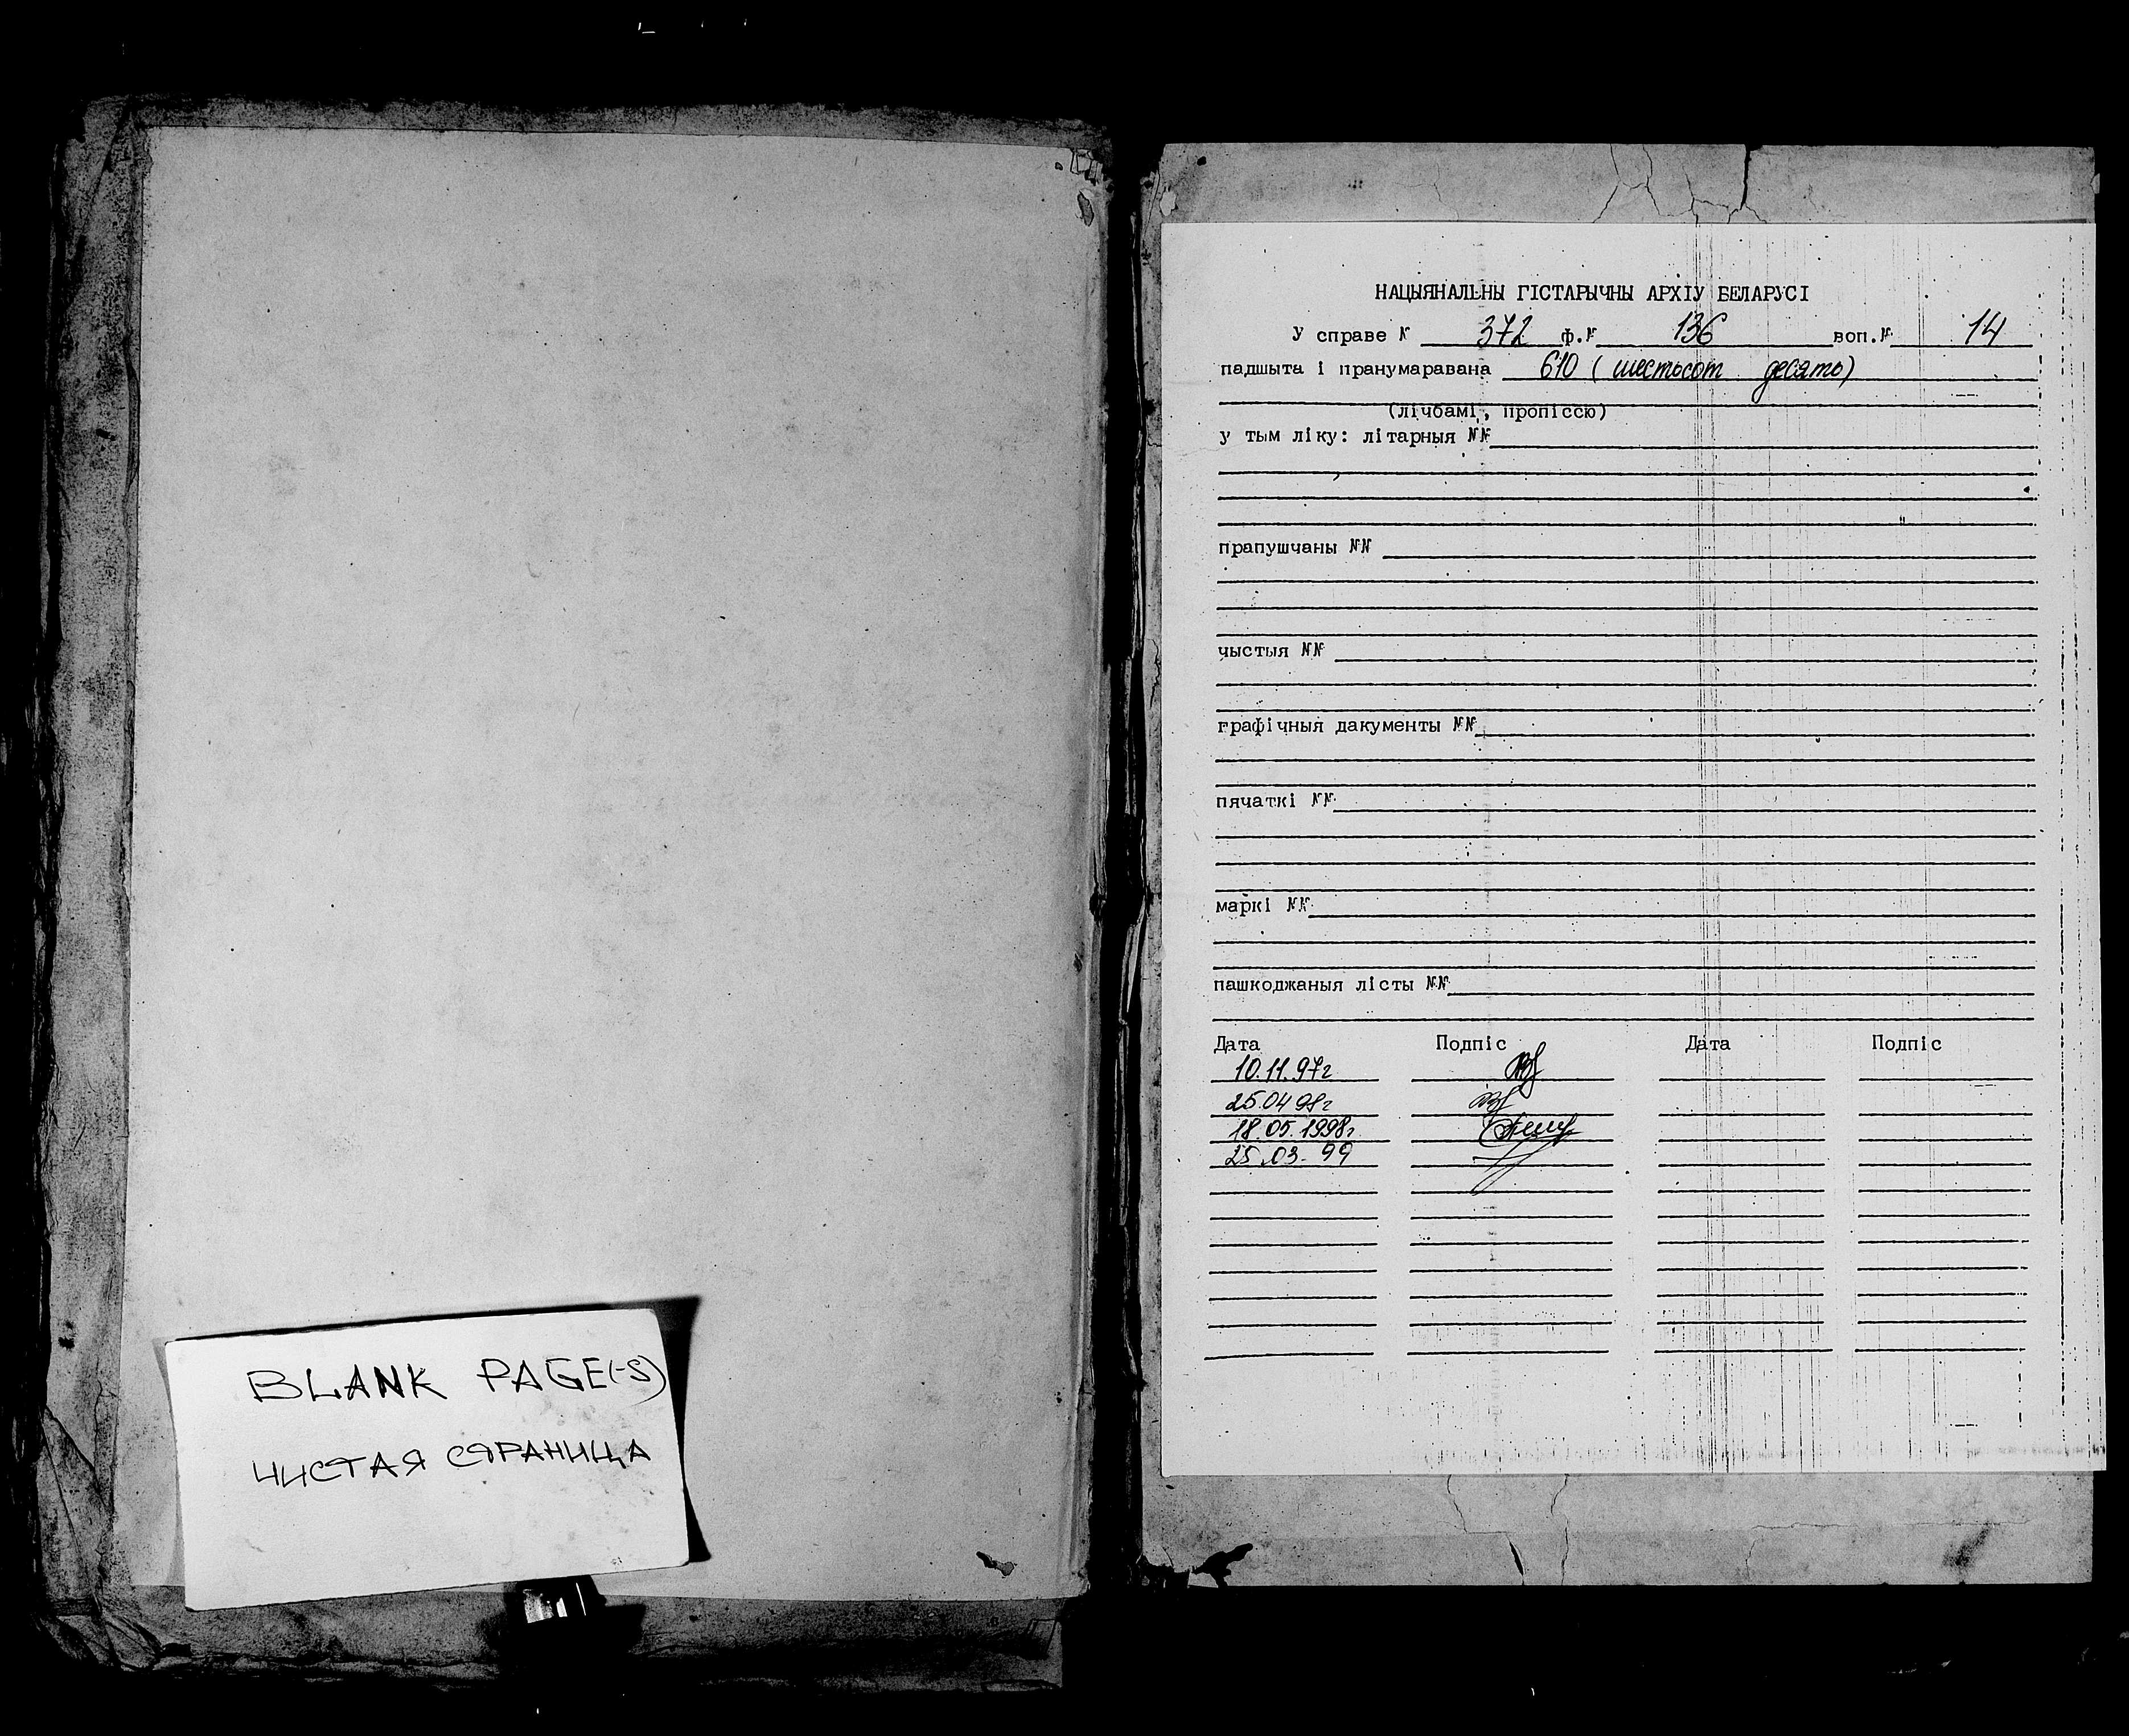 BLANK PAGE(-S)
ЧИСТАЯ СТРАНИЦА
НАЦЫЯНАЛЬНЫ ГІСТАРЫЧНЫ АРХІУ БЕЛАРУСІ
У справе № 372 ф.№ 136 воп.№ 14
падшыта і пранумаравана 610 (шестьсот десять)
(лічбамі, пропіссю)
у тым ліку: літарныя №№
прапушчаны №№
чыстыя №№
графічныя дакументы №№
пячаткі №№
маркі №№
пашкоджаныя лісты №№
Дата Подпіс Дата Подпіс
10.11.97г
25.04 98г
18.05.1998г
25.03.99